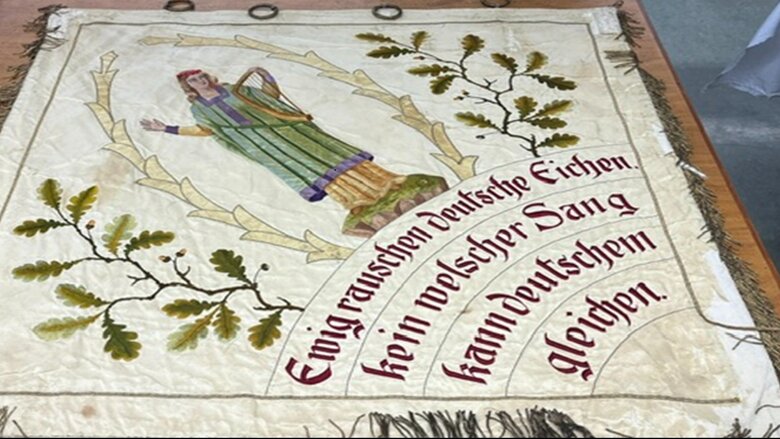 Ewig rauschen deutsche Eichen.
kein welscher Sang
kann deutschem
gleichen.